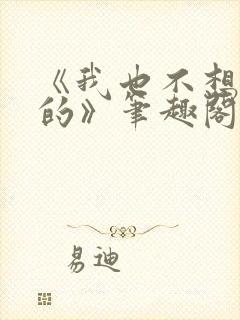 《我也不想
的》笔趣阁
易迪